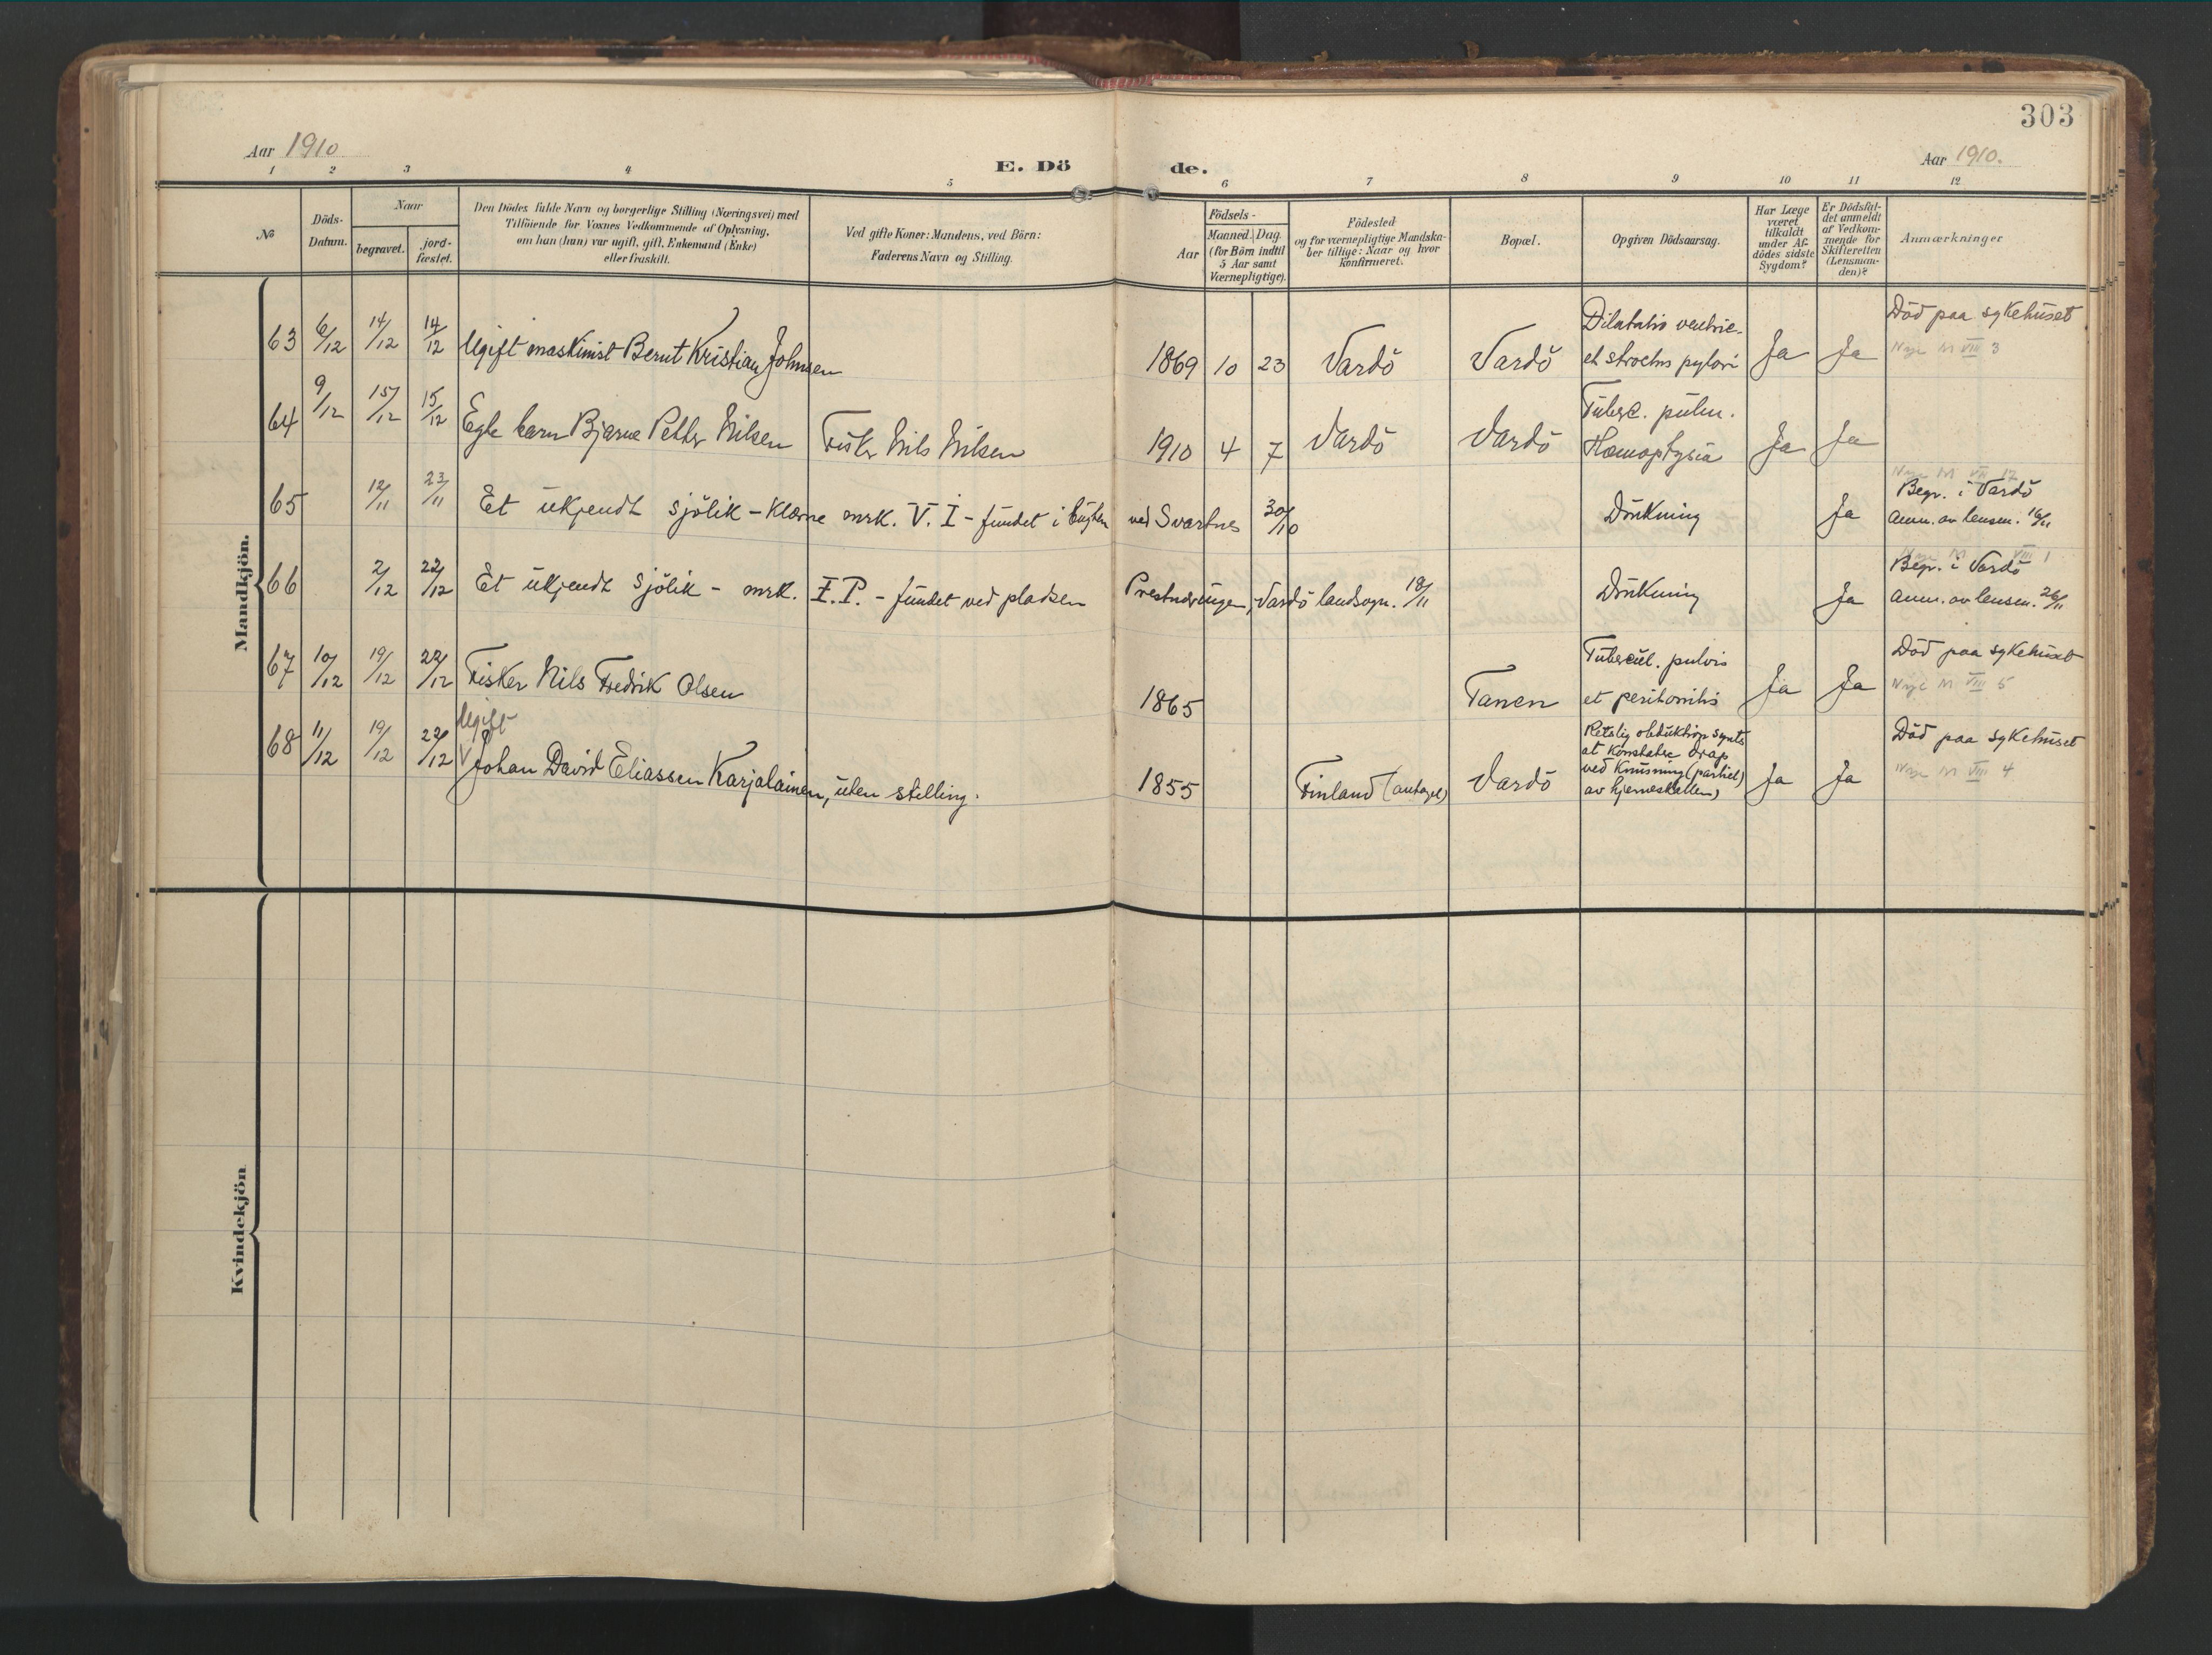 303
Aar 1910
E. Dö
de.
Aar 1910.
1 2 3 4 5 6 7 8 9 10 11 12
No
Döds-
Datum.
Naar
begravet.
jord-
fæstet.
Den Dödes fulde Navn og borgerlige Stilling (Næringsvei) med
Tilföiende for Voxnes Vedkommende af Oplysning,
om han (hun) var ugift, gift, Enkemand (Enke)
eller fraskilt.
Ved gifte Koner: Mandens, ved Börn:
Faderens Navn og Stilling.
Födsels-
Aar
Maaned.
Dag.
(for Börn indtil
5 Aar samt
Værnepligtige).
Födested
og for værnepligtige Mandska-
ber tillige: Naar og hvor
konfirmeret.
Bopæl.
Opgiven Dödsaarsag.
Har Læge
været
tilkaldt
under Af-
dödes sidste
Sygdom?
Er Dödsfal-
det anmeldt
af Vedkom-
mende for
Skifteretten
(Lensman-
den)?
Anmærkninger
Mandkjön.
63 6/12 14/12 14/12 Ugift maskinist Bernt Kristian Johnsen 1869 10 23 Vardö Vardö
Dilatatio ventric.
et pylori
Ja Ja
Död paa sykehuset
Nye M VIII 3
64 9/12 15/12 15/12 Egte barn Bjarne Petter Nilsen Fisker Nils Nilsen 1910 4 7 Vardö Vardö
Tuberc. pulm.
Hæmoptysia
Ja Ja
Nye M VII 12
65 12/11 23/11 Et ukjendt sjölik - Klærne mrk. V. I - fundet i bugten ved Svartnes 30/10 Drukning Ja
Begr. i Vardö
anm. av lensm. 16/11
Nye M VIII 1
66 2/12 22/12 Et ukjendt sjölik - mrk. I. P. - fundet ved pladsen Prestnæringen, Vardö landsogn. 18/11 Drukning Ja
Begr. i Vardö
anm. av lensm. 26/11
67 10/12 19/12 22/12 Fisker Nils Fredrik Olsen 1865 Tanen
Tubercul. pulvis
et peritonitis
Ja Ja
Död paa sykehuset
Nye M VIII 5
Ugift
68 11/12 19/12 22/12 V Johan David Eliassen Karjalainen, uten stilling. 1855 Finland (antagel) Vardö
Retslig obduktion synts
at konstatere drap
ved knusning (partiel)
av hjerneskallen)
Ja Ja
Död paa sykehuset
Nye M VIII 4
Kvindekjön